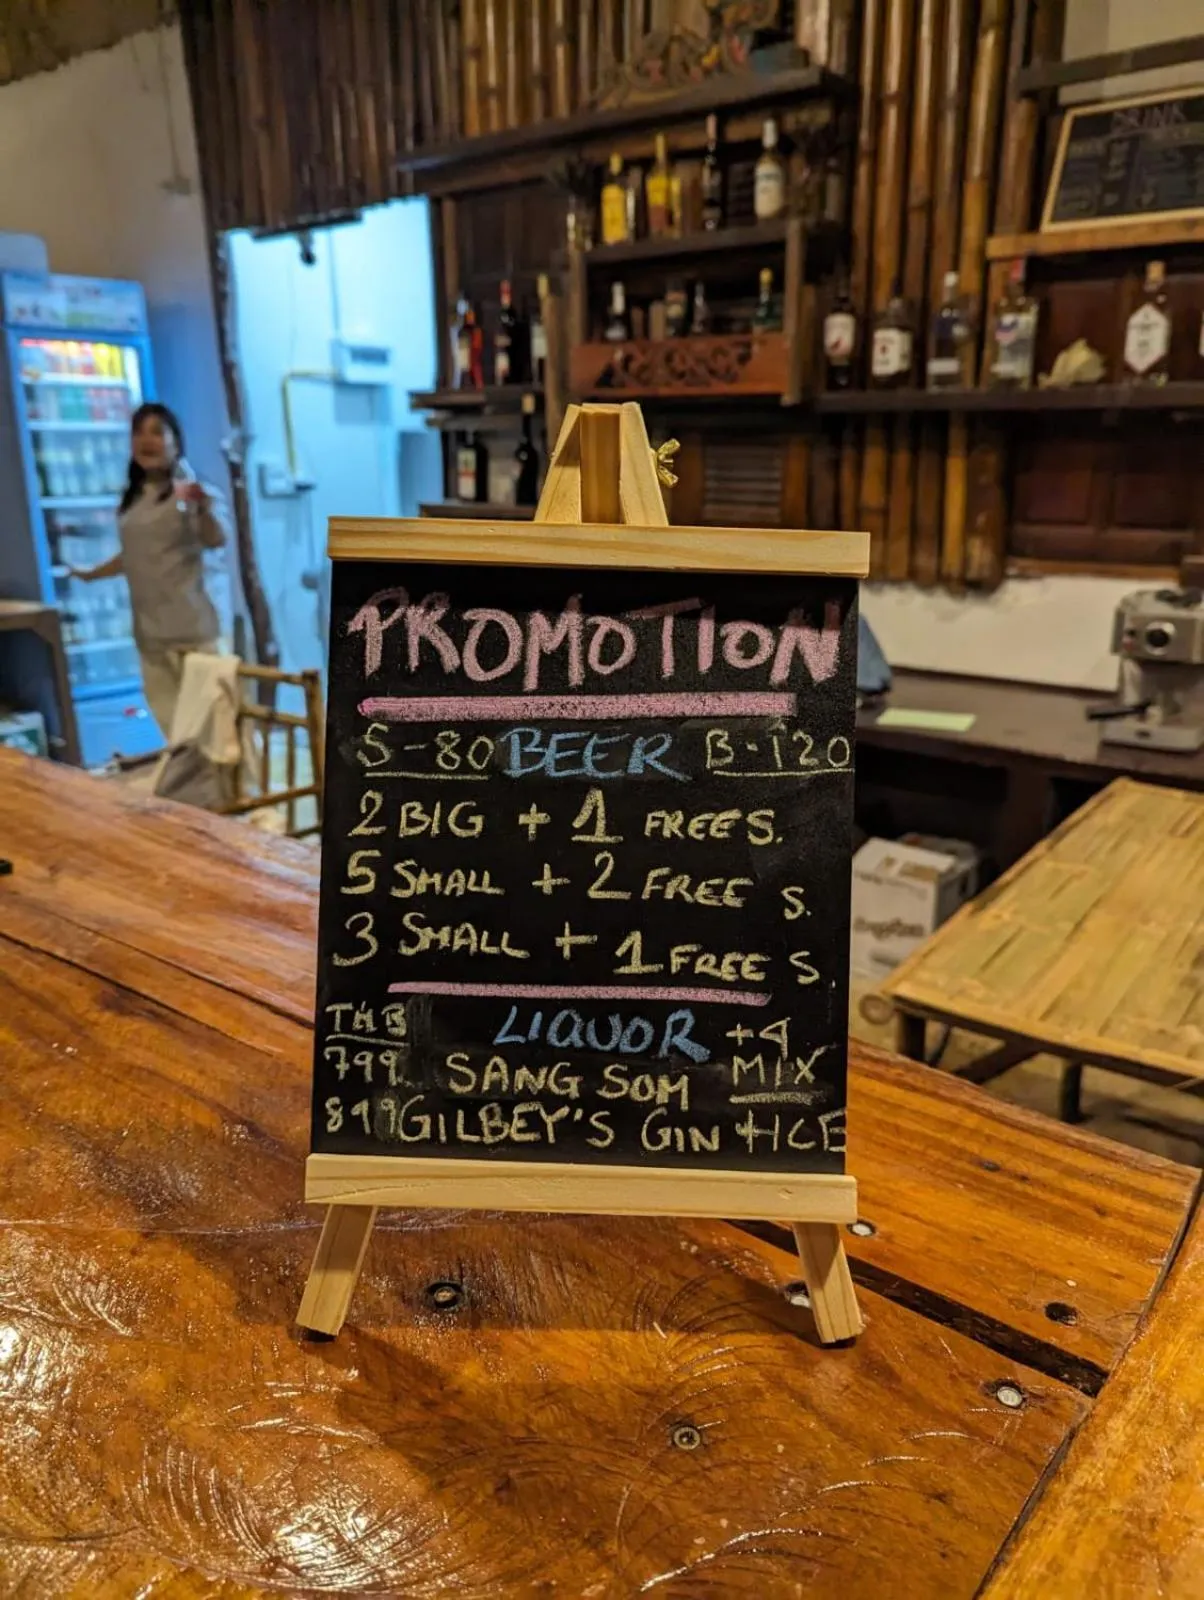 PROMOTION
S-80 BEER B-120
2 BIG + 1 FREE S.
5 SMALL + 2 FREE S.
3 SMALL + 1 FREE S
THB LIQUOR +4
799. SANG SOM MIX
899 GILBEY'S GIN +ICE
DRINK